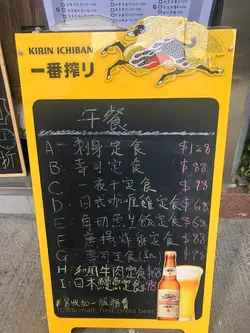 KIRIN ICHIBAN
一番搾り
午餐
A: 刺身定食 $128
B: 寿司定食 $88
C: 一夜干定食 $78
D: 日式咖喱雞定食 $68
E: 角切魚生飯定食 $88
F: 唐揚炸雞定食 $
G: 壽司刺身定食 $88
H: 和風牛肉定食 $78
I: 日本鰻魚定食 $
另收加一服務費
100% malt, first press beer